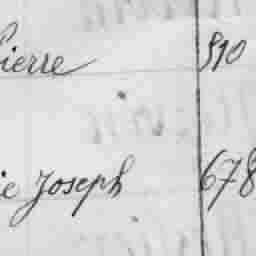 Pierre 510
ie Joseph 678